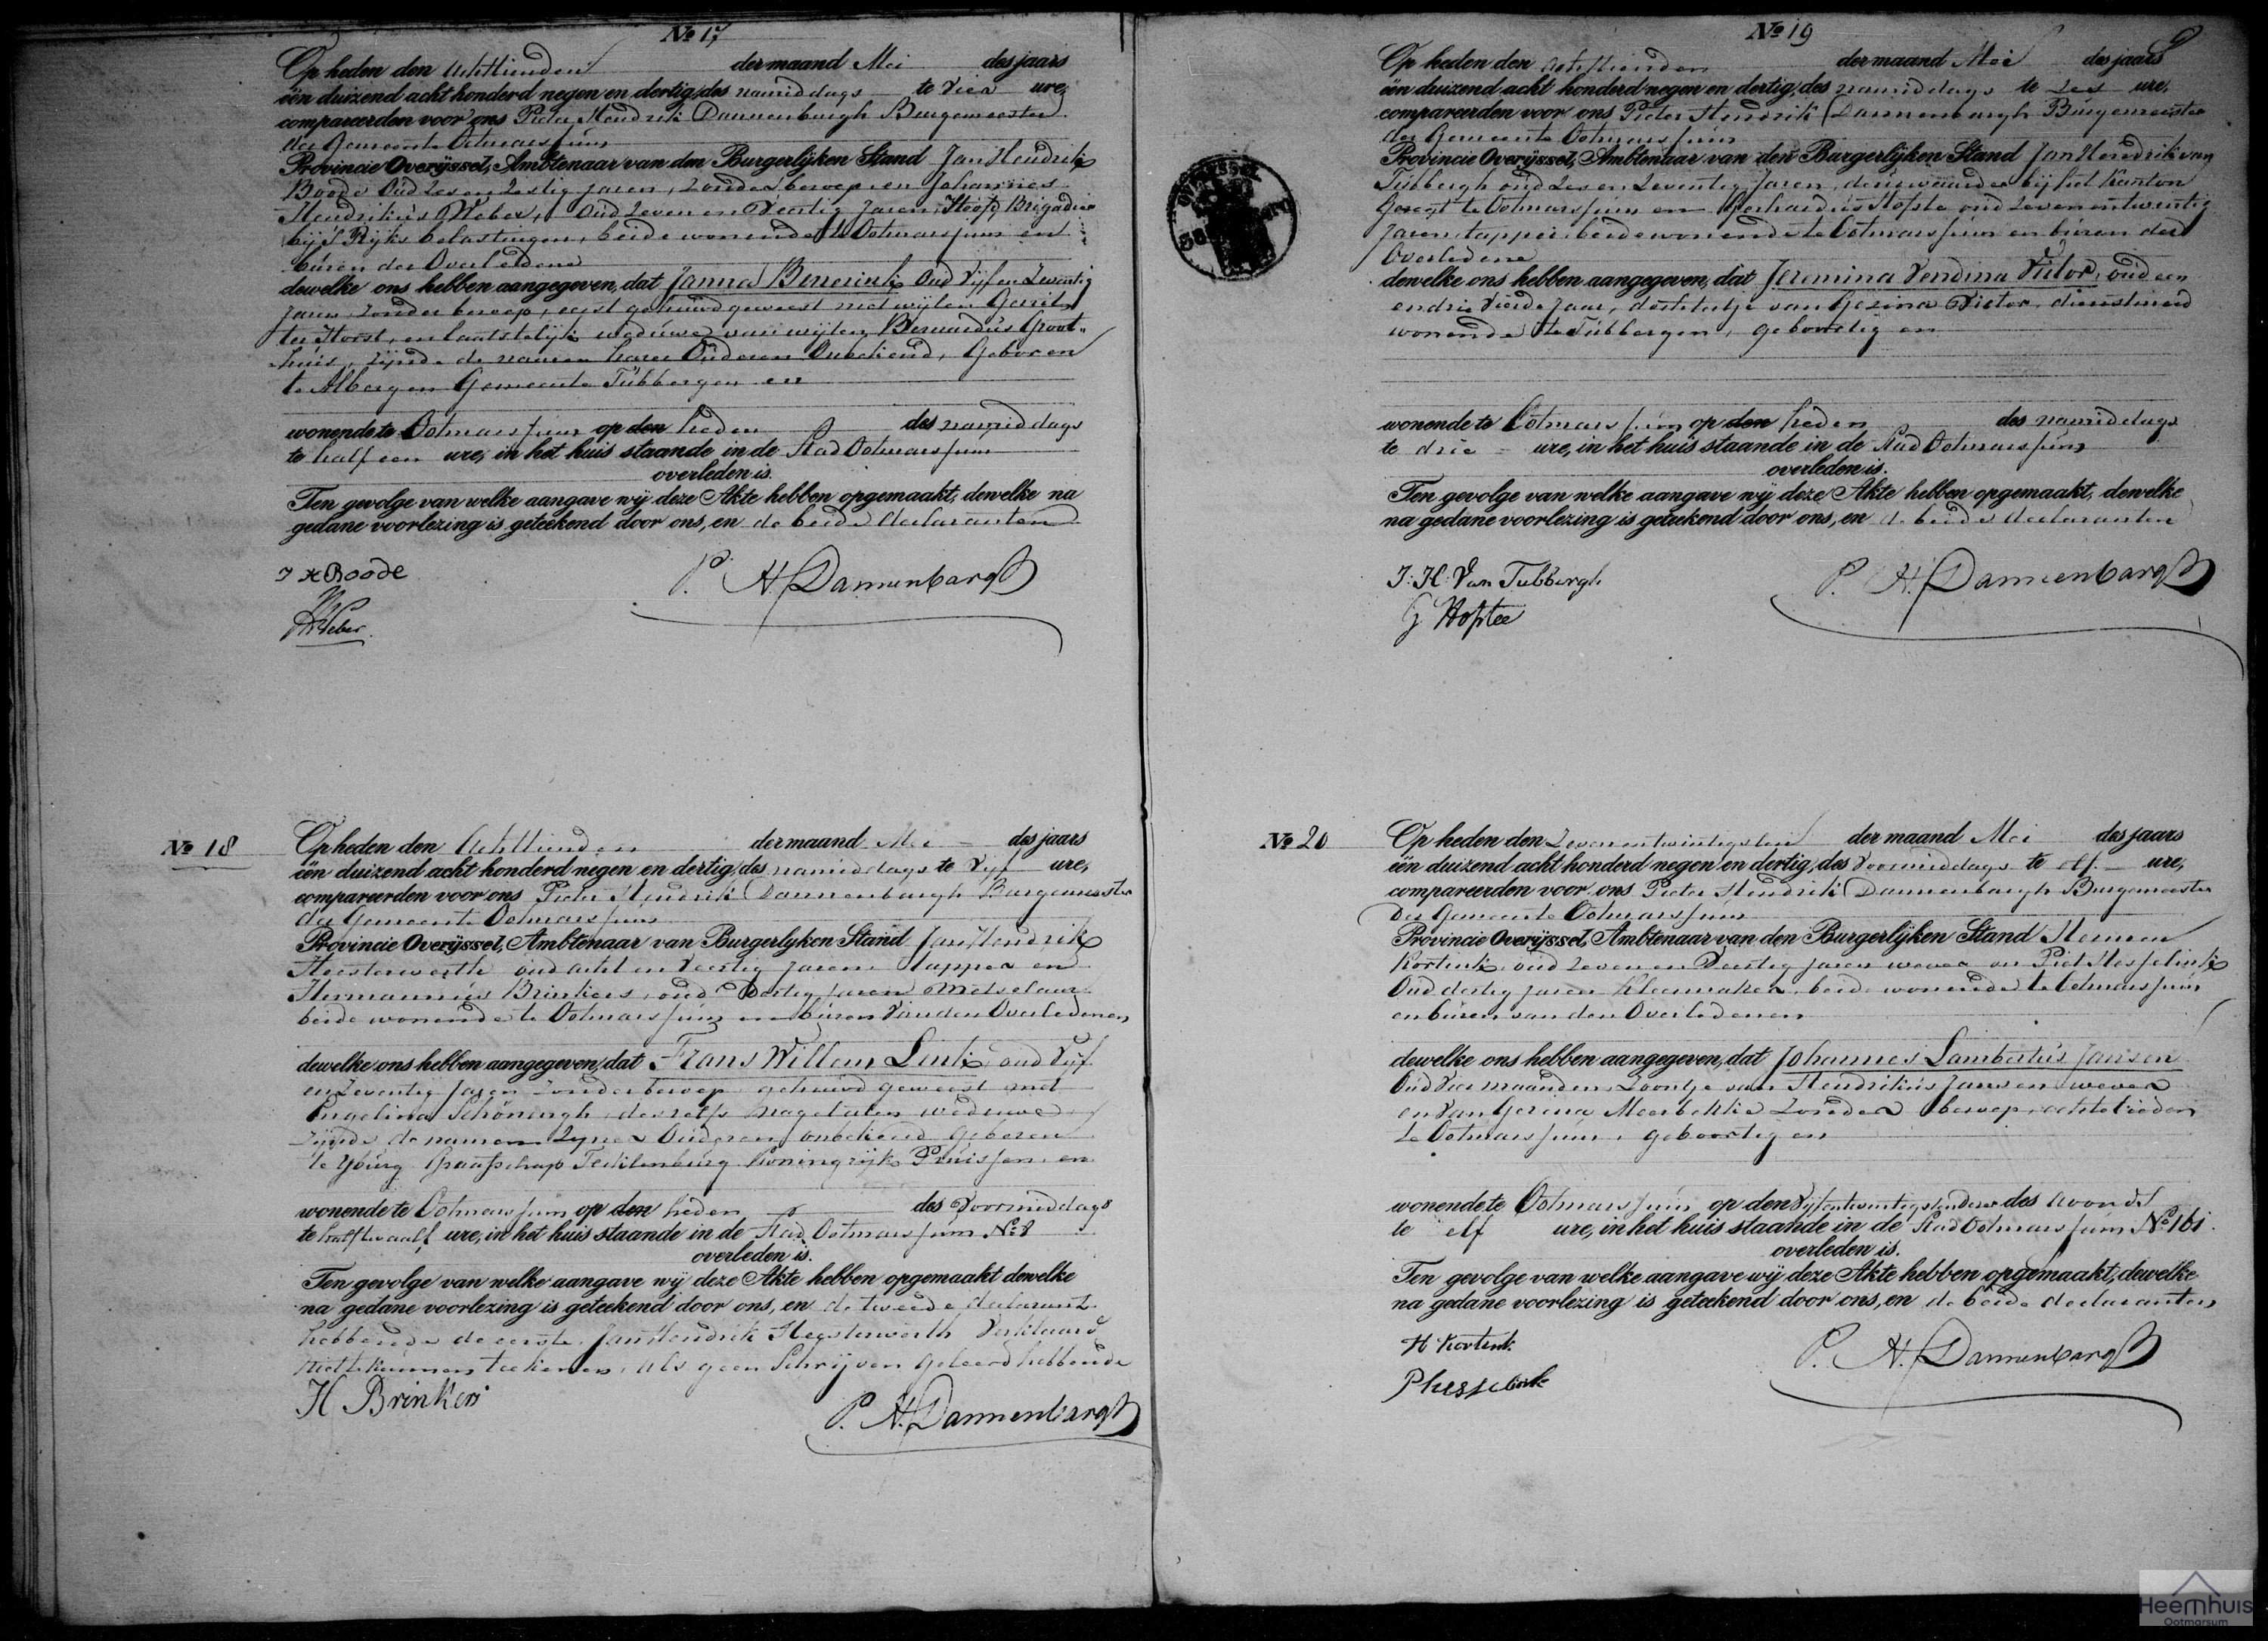 No 17
Op heden den Achttienden der maand Mei des jaars
één duizend acht honderd negen en dertig, des namiddags te Vier ure,
compareerden voor ons Pieter Hendrik Dannenbargh Burgemeester
der Gemeente Ootmarssum
Provincie Overijssel, Ambtenaar van den Burgerlijken Stand Jan Hendrik
Boode Oud Zes en Zestig Jaren, Zonder beroep en Johannes
Hendrikus Weber, Oud Zeven en Veertig Jaren, Hoofd Brigadier
bij 's Rijks belastingen, beide wonende te Ootmarssum en
buren der Overledene
dewelke ons hebben aangegeven, dat Janna Benerink Oud Vijf en Zeventig
Jaren Zonder beroep, eerst gehuwd geweest met wijlen Gerrit
ter Horst, en laatstelijk weduwe van wijlen Bernardus Groot-
huis, zijnde de namen harer Ouderen Onbekend, Geboren
te Albergen Gemeente Tubbergen en
wonende te Ootmarssum op den heden des namiddags
te half een ure, in het huis staande in de Stad Ootmarssum
overleden is.
Ten gevolge van welke aangave wij deze Akte hebben opgemaakt, dewelke na
gedane voorlezing is geteekend door ons, en de beide declaranten
J H Boode
P. H. Dannenbargh
Weber
No 18
Op heden den Achttienden der maand Mei des jaars
één duizend acht honderd negen en dertig, des namiddags te Vijf ure,
compareerden voor ons Pieter Hendrik Dannenbargh Burgemeester
der Gemeente Ootmarssum
Provincie Overijssel, Ambtenaar van Burgerlyken Stand Jan Hendrik
Heesterwerth oud acht en Veertig Jaren Tapper en
Hermannus Brinkers, oud Dertig Jaren Metselaar
beide wonende te Ootmarssum en buren van den Overledenen
dewelke ons hebben aangegeven, dat Frans Willem Link oud Vijf
en Zeventig Jaren Zonder beroep gehuwd geweest met
Engelina Schöningh, deszelfs nagelaten weduwe
Zijnde de namen Zyner Ouderen onbekend Geboren
te Yburg Graafschap Tecklenburg Koningrijk Pruissen en
wonende te Ootmarssum op den heden des Voormiddags
te half twaalf ure, in het huis staande in de Stad Ootmarssum No 8
overleden is.
Ten gevolge van welke aangave wij deze Akte hebben opgemaakt dewelke
na gedane voorlezing is geteekend door ons, en de tweede declarant
hebbende de eerste Jan Hendrik Heesterwerth Verklaard
niet te kunnen teekenen, als geen Schrijven geleerd hebbende
H Brinkers
P. H. Dannenbargh
No 19
Op heden den Achttienden der maand Mei des jaars
één duizend acht honderd negen en dertig, des namiddags te Zes ure,
compareerden voor ons Pieter Hendrik Dannenbargh Burgemeester
der Gemeente Ootmarssum
Provincie Overijssel, Ambtenaar van den Burgerlijken Stand Jan Hendrik van
Tubbergh oud Zes en Zeventig Jaren, deurwaarder bij het Kanton
Geregt te Ootmarssum en Gerhardus Hofste oud Zeven en twintig
Jaren, tapper beide wonende te Ootmarssum en buren der
Overledene
dewelke ons hebben aangegeven, dat Jeremina Vendina Victor, oud een
en drie Vierde Jaar, dochtertje van Gezina Victor, dienstmeid
wonende te Tubbergen, geboortig en
wonende te Ootmarssum op den heden des namiddags
te drie ure, in het huis staande in de Stad Ootmarssum
overleden is.
Ten gevolge van welke aangave wij deze Akte hebben opgemaakt, dewelke
na gedane voorlezing is geteekend door ons, en de beide declaranten
J: H: Van Tubbergh
P. H. Dannenbargh
G Hofste
No 20
Op heden den Zevenentwintigsten der maand Mei des jaars
één duizend acht honderd negen en dertig, des Voormiddags te elf ure,
compareerden voor ons Pieter Hendrik Dannenbargh Burgemeester
der Gemeente Ootmarssum
Provincie Overijssel, Ambtenaar van den Burgerlijken Stand Hermen
Kortink, oud Zeven en Veertig Jaren wever en Piet Hesselink
Oud dertig Jaren Kleermaker, beide wonende te Ootmarssum
en buren van den Overledenen
dewelke ons hebben aangegeven, dat Johannes Lambertus Jansen
Oud Vier maanden, Zoontje van Hendrikus Jansen wever
en van Gerina Meerbekke Zonder beroep, echtelieden
te Ootmarssum, geboortig en
wonende te Ootmarssum op den Vijfentwintigsten dezer des Avonds
te elf ure, in het huis staande in de Stad Ootmarssum No 161.
overleden is.
Ten gevolge van welke aangave wij deze Akte hebben opgemaakt, dewelke
na gedane voorlezing is geteekend door ons, en de beide declaranten
H Kortink
P. H. Dannenbargh
P hesselink
Heemhuis
Ootmarsum